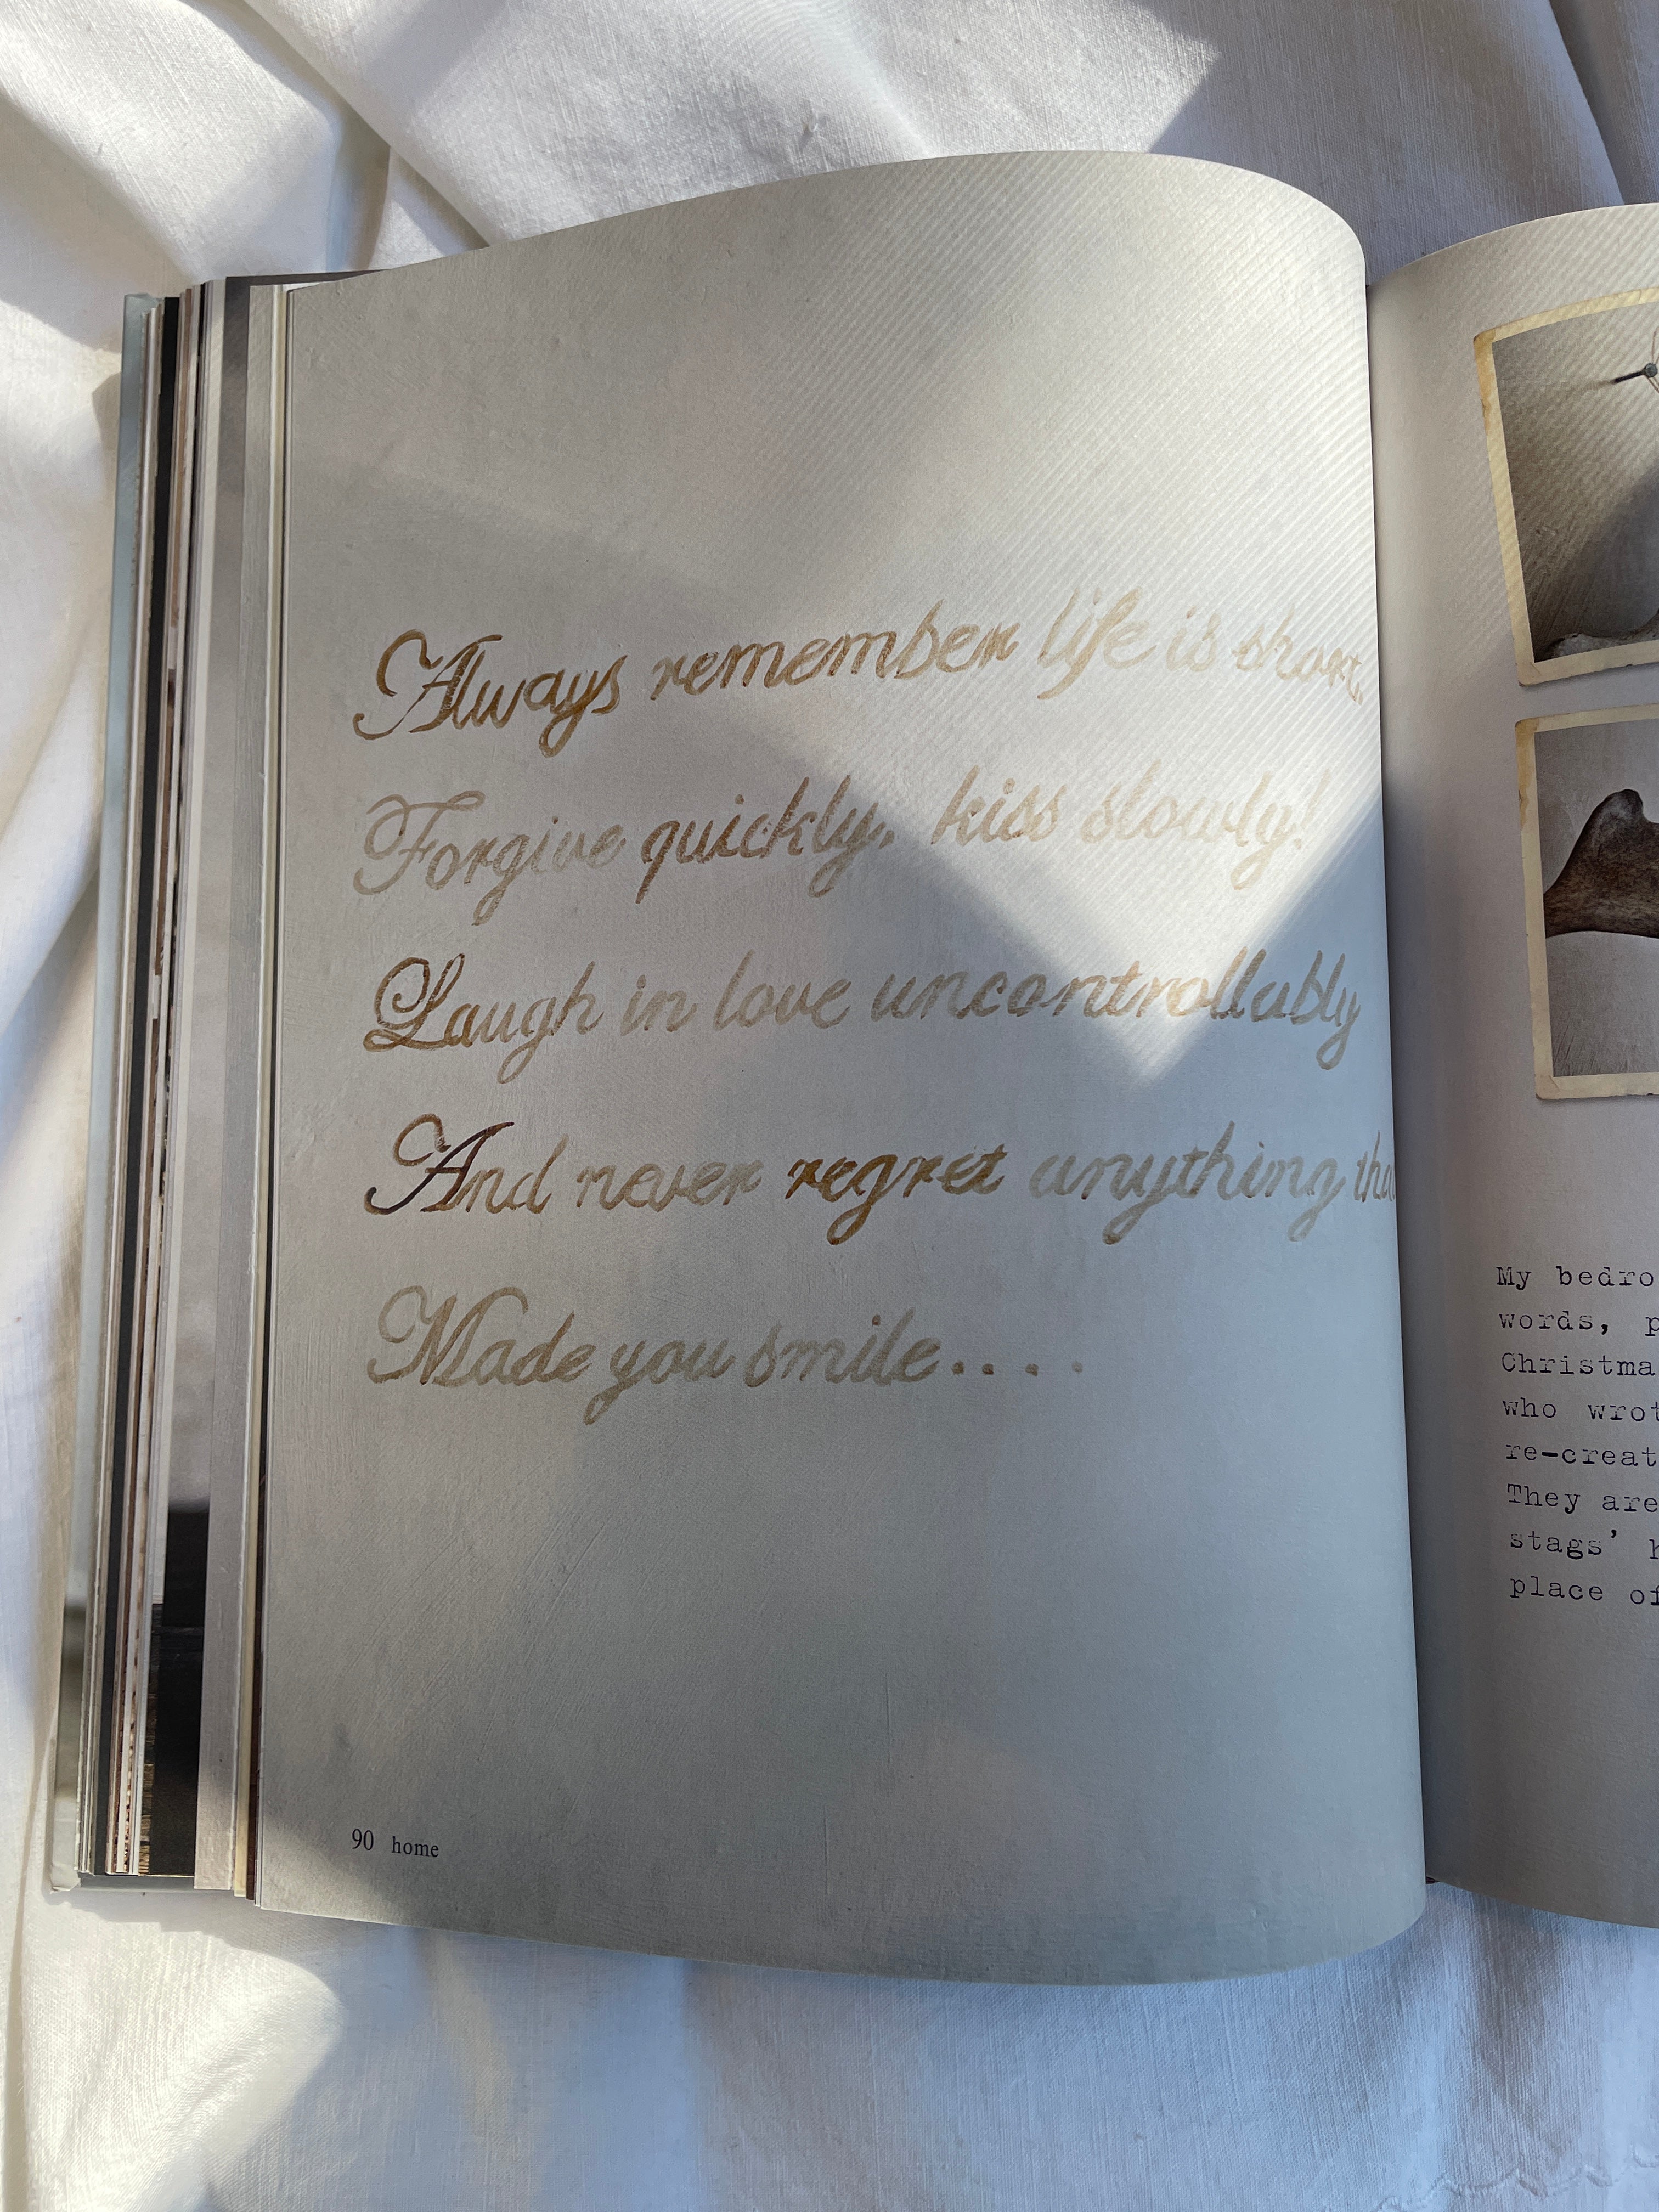 Always remember life is short.
Forgive quickly, kiss slowly!
Laugh in love uncontrollably
And never regret anything tha
Made you smile....
90 home
My bedro
words, p
Christma
who wrot
re-creat
They are
stags' h
place of